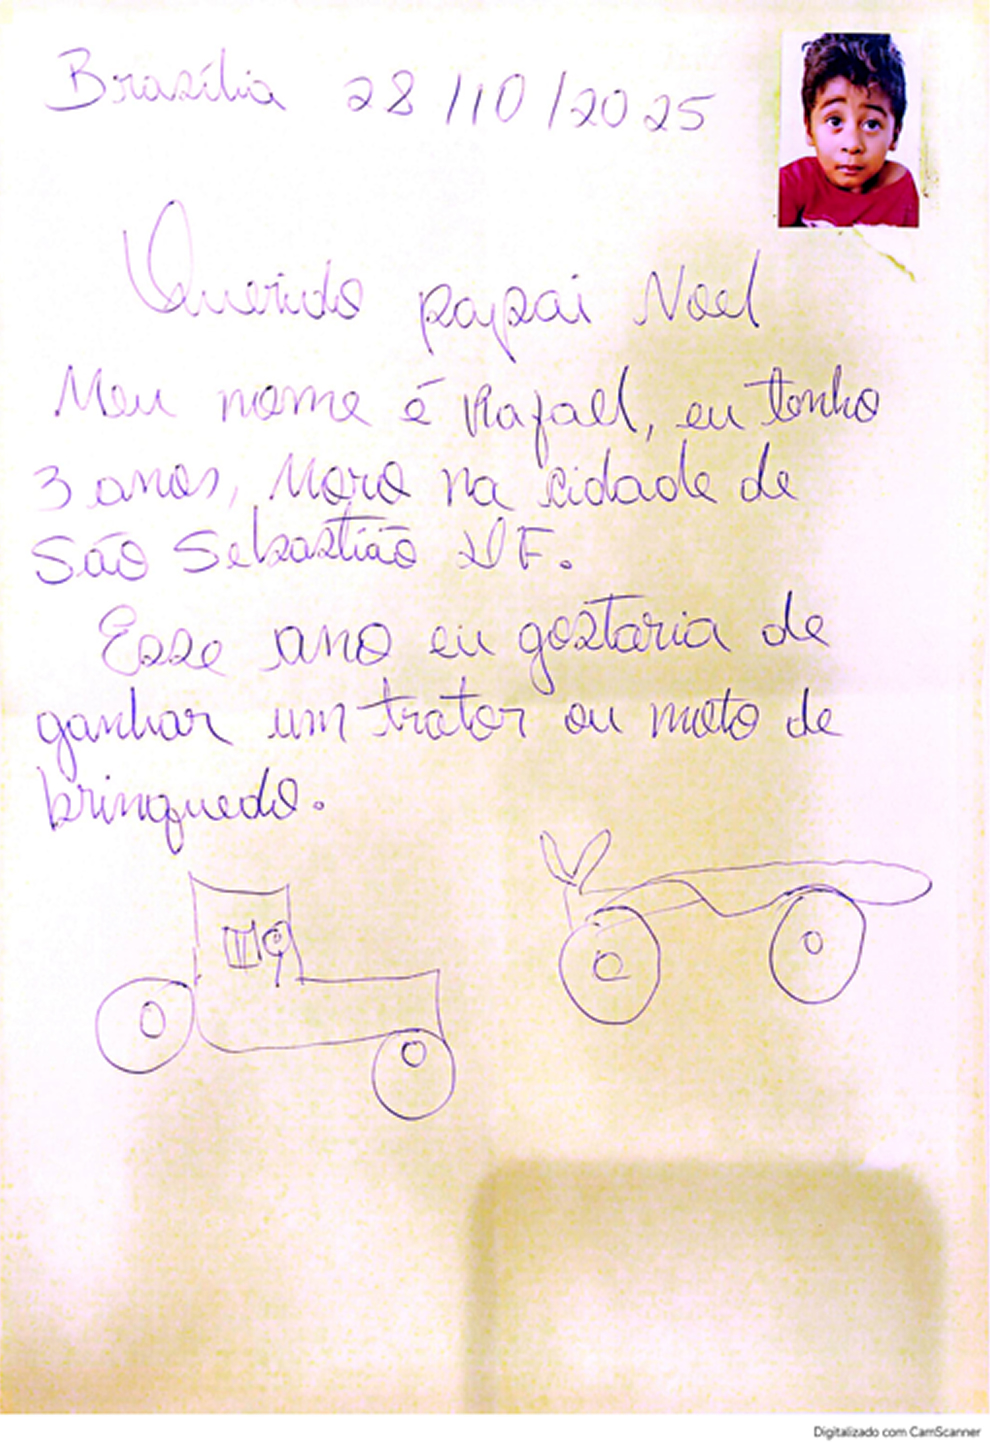 Brasília 28/10/2025
Querido papai Noel
Meu nome é Rafael, eu tenho
3 anos, Moro na cidade de
São Sebastião DF.
Esse ano eu gostaria de
ganhar um trator ou moto de
brinquedo.
Digitalizado com CamScanner